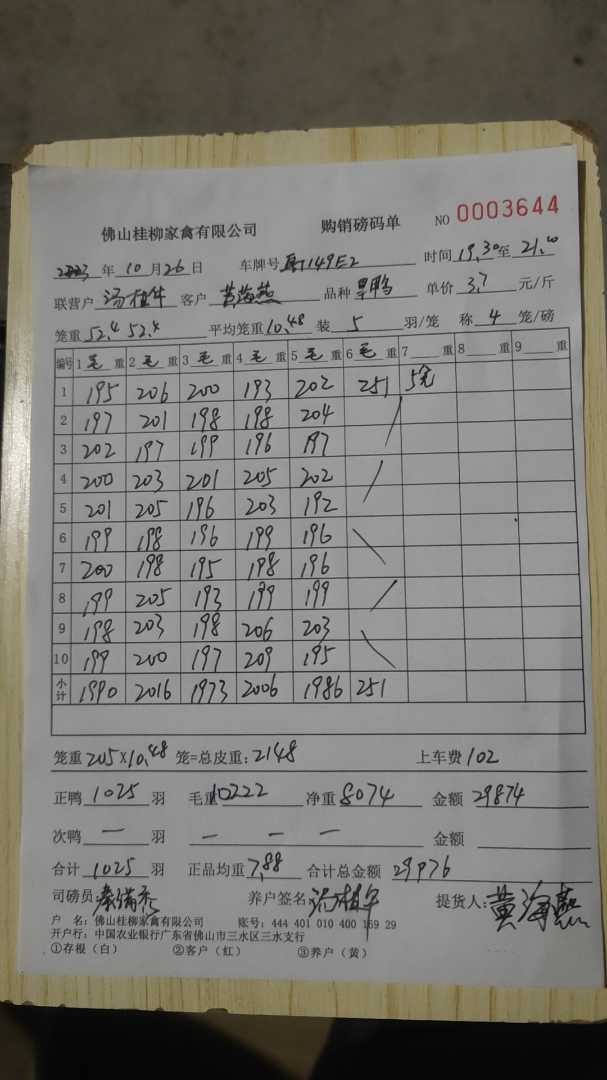 佛山桂柳家禽有限公司 购销磅码单 NO 0003644
2023 年 10 月 26 日 车牌号 149E2 时间 19.30 至 21.00
联营户 汤植牛 客户 黄海燕 品种 旱鸭 单价 3.7 元/斤
笼重 52.4 52.4 平均笼重 10.48 装 5 羽/笼 称 4 笼/磅
编号 1 毛 重 2 毛 重 3 毛 重 4 毛 重 5 毛 重 6 毛 重 7 重 8 重 9 重
1 195 206 200 193 202 251 5笼
2 197 201 198 198 204
3 202 197 199 196 197
4 200 203 201 205 202
5 201 205 196 203 192
6 199 198 196 199 196
7 200 198 195 198 196
8 199 205 193 199 199
9 198 203 198 206 203
10 199 200 197 209 195
小计 1990 2016 1973 2006 1986 251
笼重 205×10.48 笼=总皮重: 2148 上车费 102
正鸭 1025 羽 毛重 10222 净重 8074 金额 29874
次鸭 — 羽 — — — 金额
合计 1025 羽 正品均重 7.88 合计总金额 29976
司磅员: 养户签名: 提货人: 黄海燕
户 名: 佛山桂柳家禽有限公司 账号: 444 401 010 400 169 29
开户行: 中国农业银行广东省佛山市三水区三水支行
①存根(白) ②客户(红) ③养户(黄)